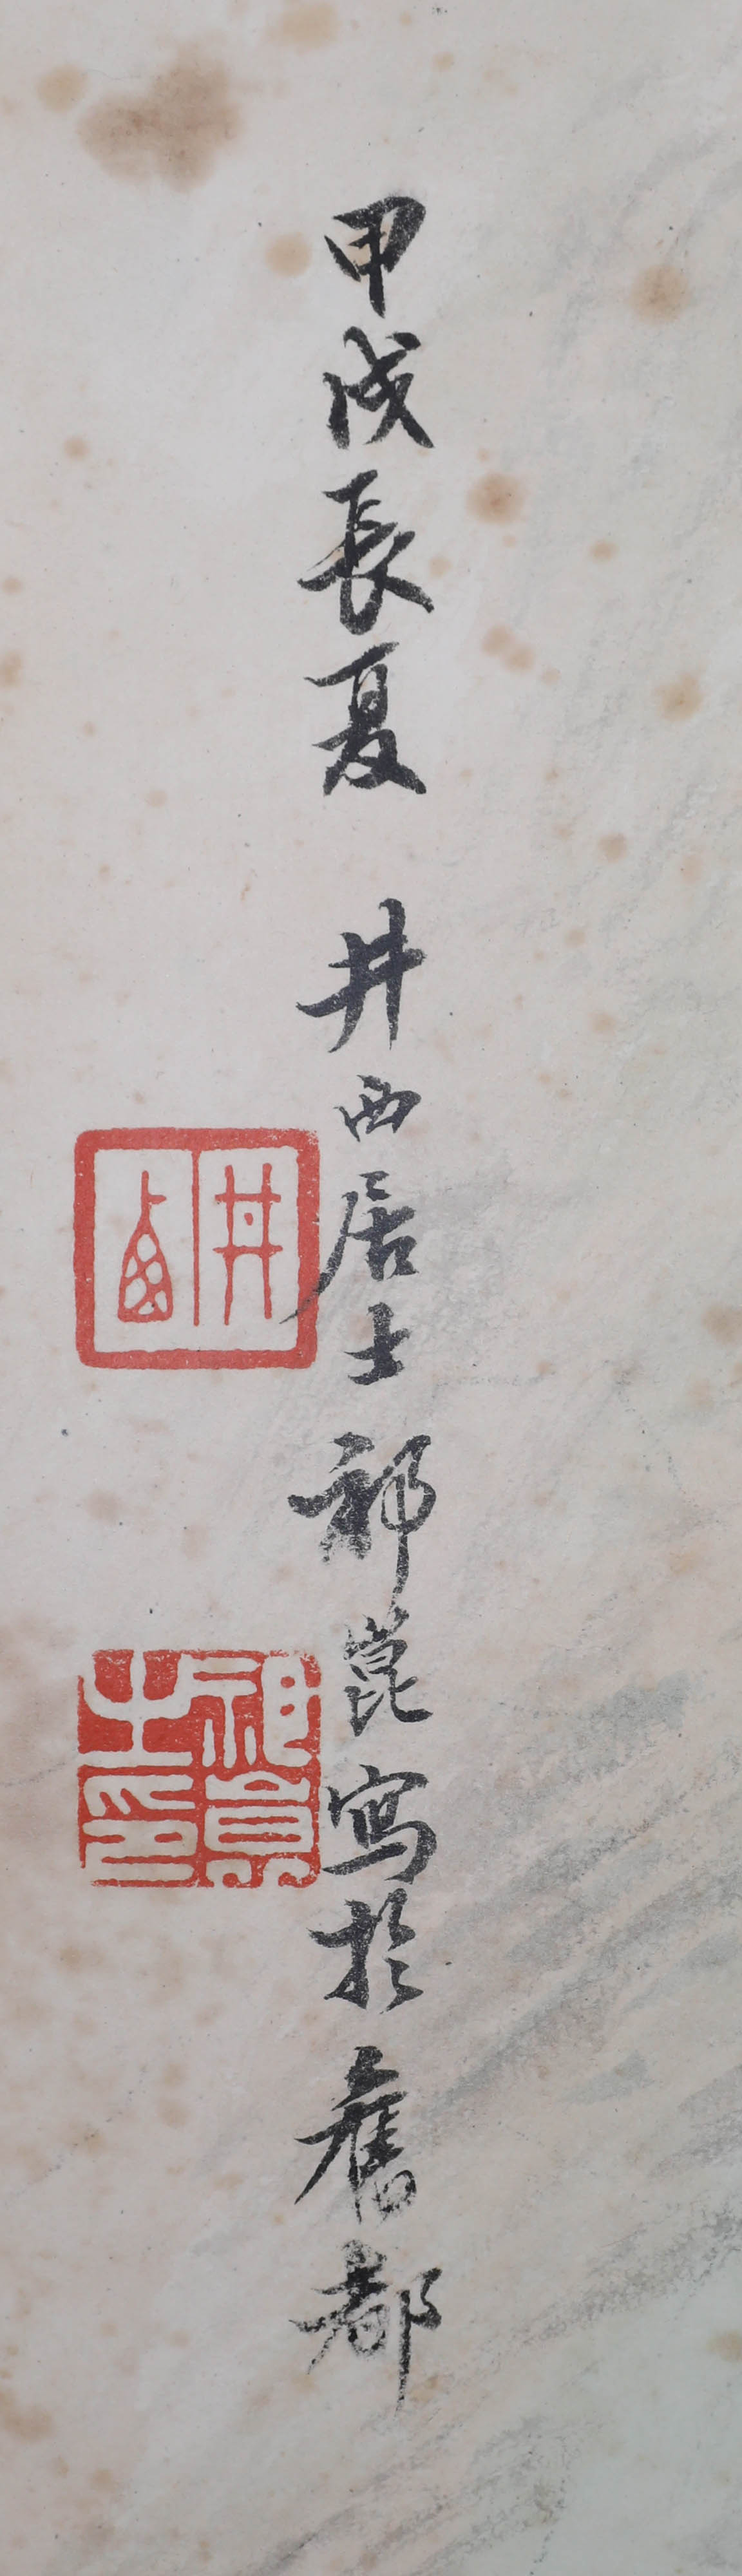 甲戌長夏 井西居士祁崑寫於舊都
井西
祁景